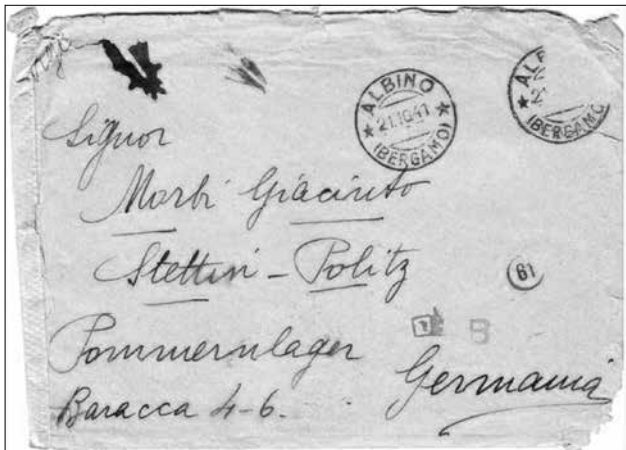 ALBINO
21.10.41
(BERGAMO)
ALB
21
(BERGAMO
Signor
Morbi Giacinto
Stettin - Politz
61
B
Pommernlager
Germania
Baracca 4-6.